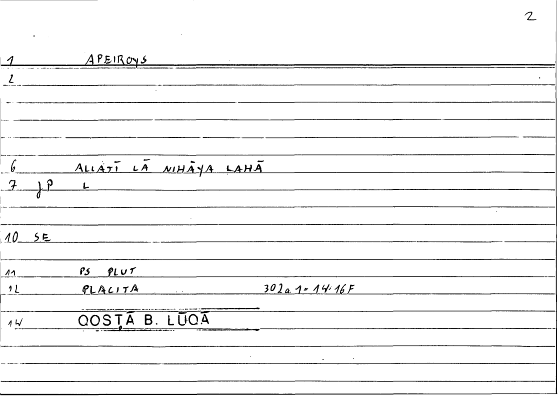 2
1 APEIROYS
2
6 ALLATĪ LĀ NIHĀYA LAHĀ
7 JP L
10 SE
11 PS PLUT
12 PLACITA 302a 1-14·16F
14 QOSṬĀ B. LŪQĀ